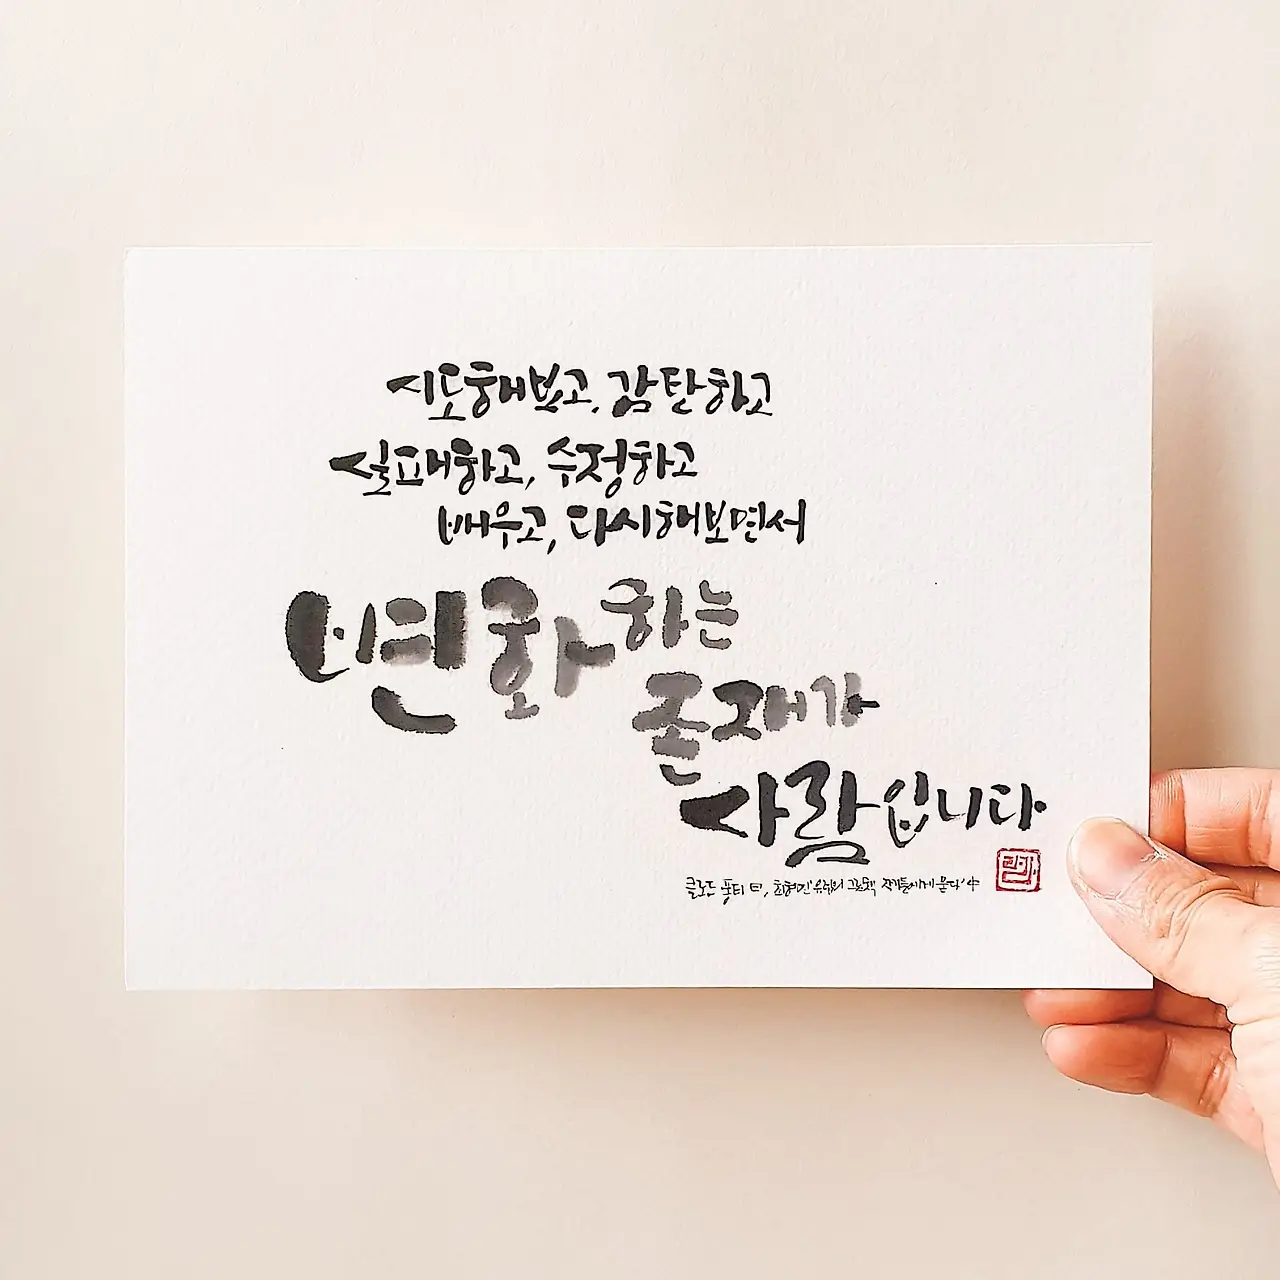 시도해보고, 감탄하고
실패하고, 수정하고
배우고, 다시해보면서
변화하는
존재가
사람입니다
클로드 퐁티 편, 최혜진 '유럽의 그림책 작가들에게 묻다' 中